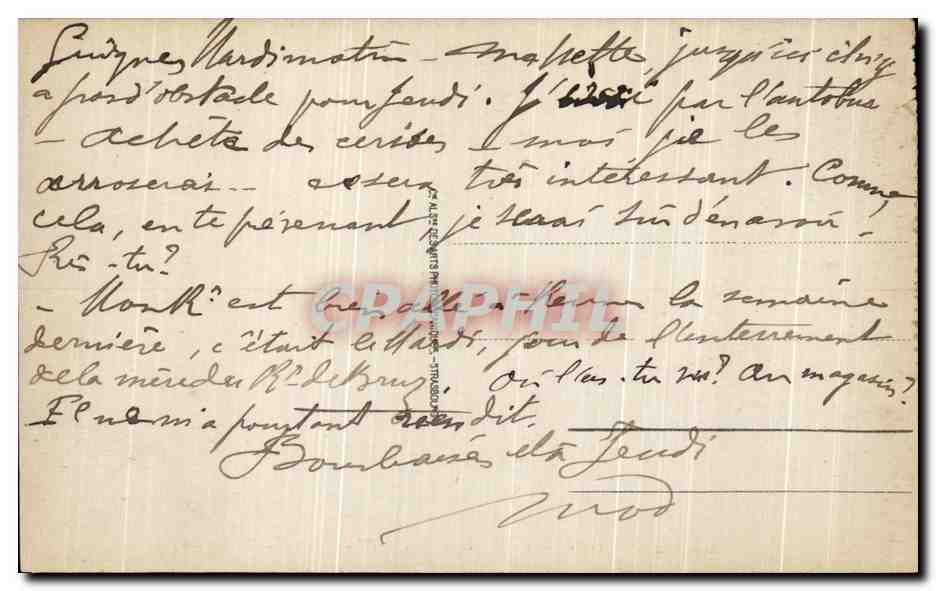 Mardi matin - Ma petite, jusqu'ici il n'y
a pas d'obstacle pour Jeudi. J' par l'autobus
- achète des cerises - moi je les
arroserai -- ce sera très intéressant. Comme
cela, en te prévenant, je serai sûr d'en avoir.
Ris-tu?
- Mon Rr est bien allé à Rennes la semaine
dernière, c'était le Mardi, jour de l'enterrement
de la mère du Rr de Bruz. Où l'as-tu vu? Au magasin?
Il ne m'a pourtant rien dit.
Bons baisers et à Jeudi
Cie ALSne DES ARTS PHOTOMÉCANIQUES. - STRASBOURG
CPAPHIL